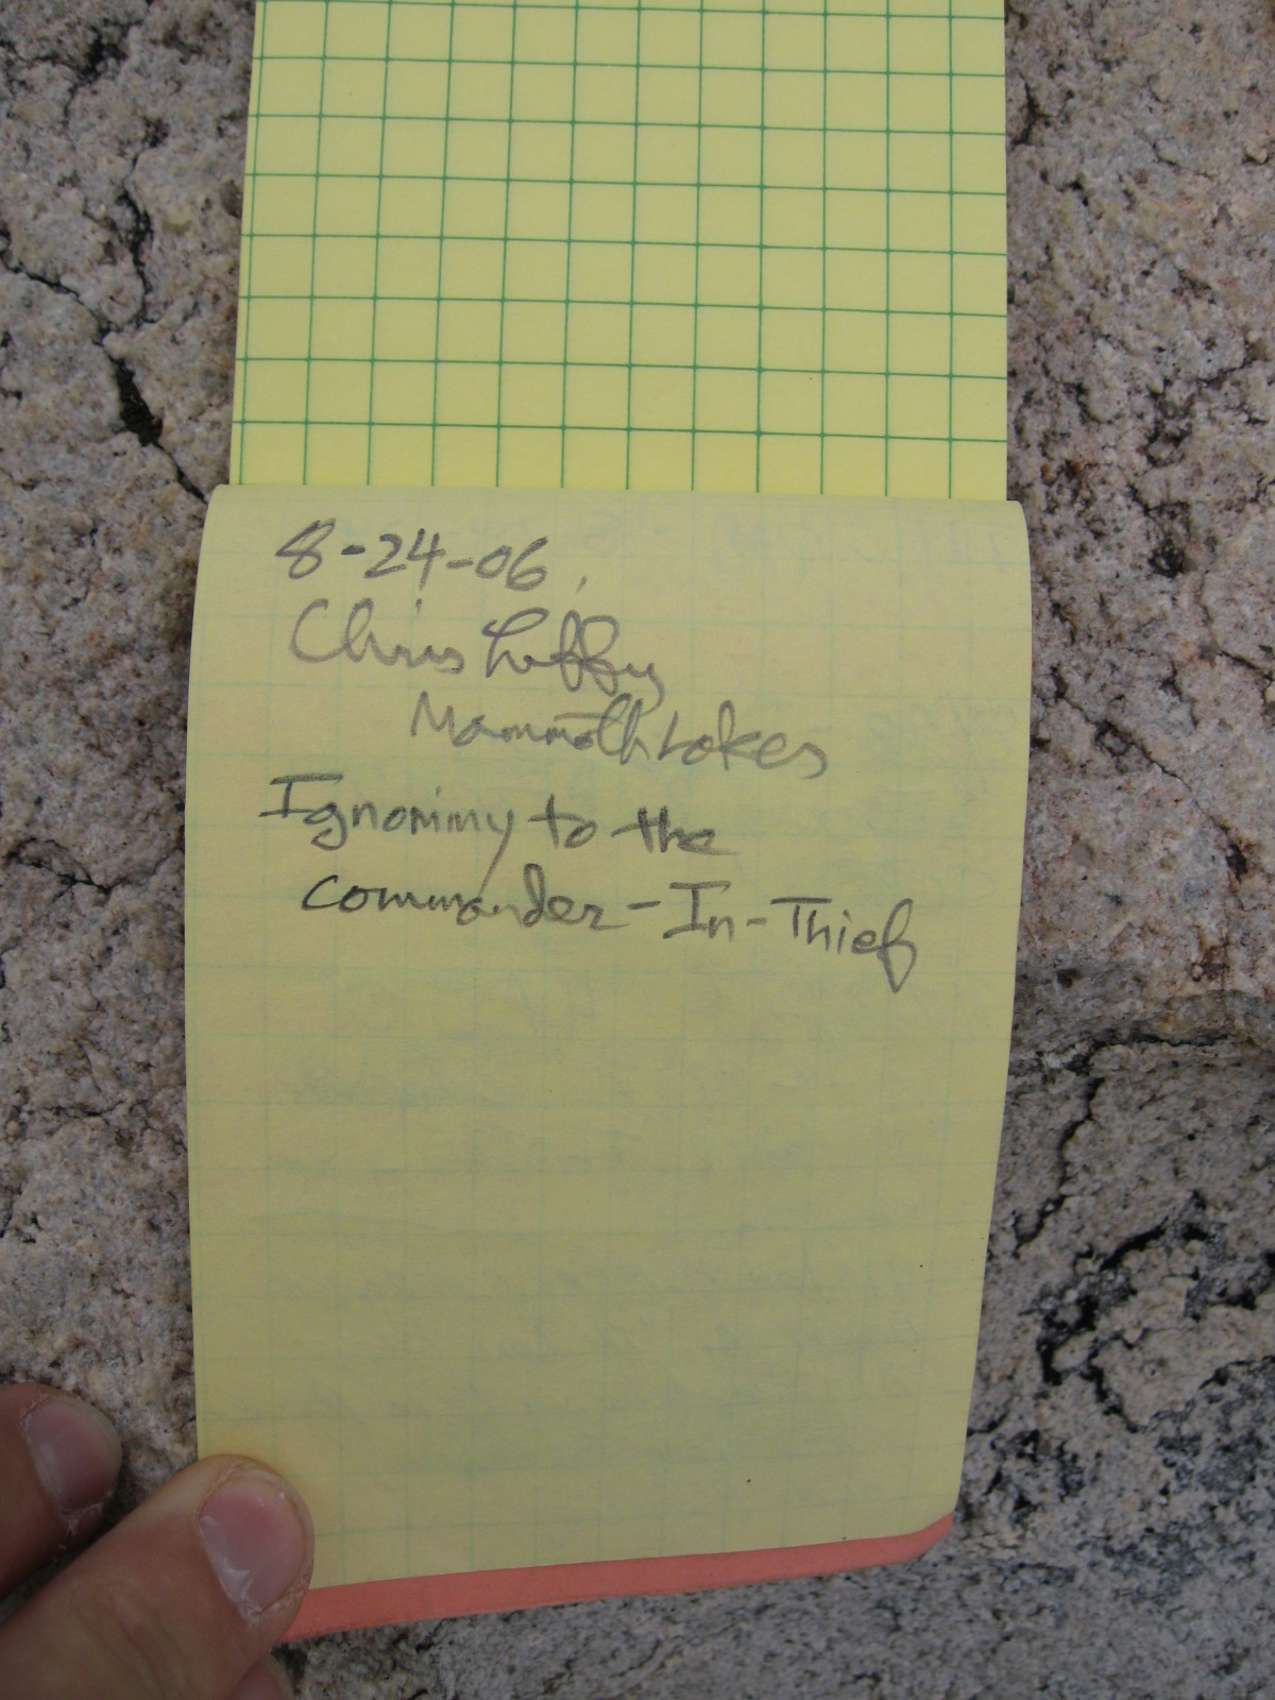 8-24-06
Chris
Mammoth Lakes
Ignominy to the
commander-In-Thief